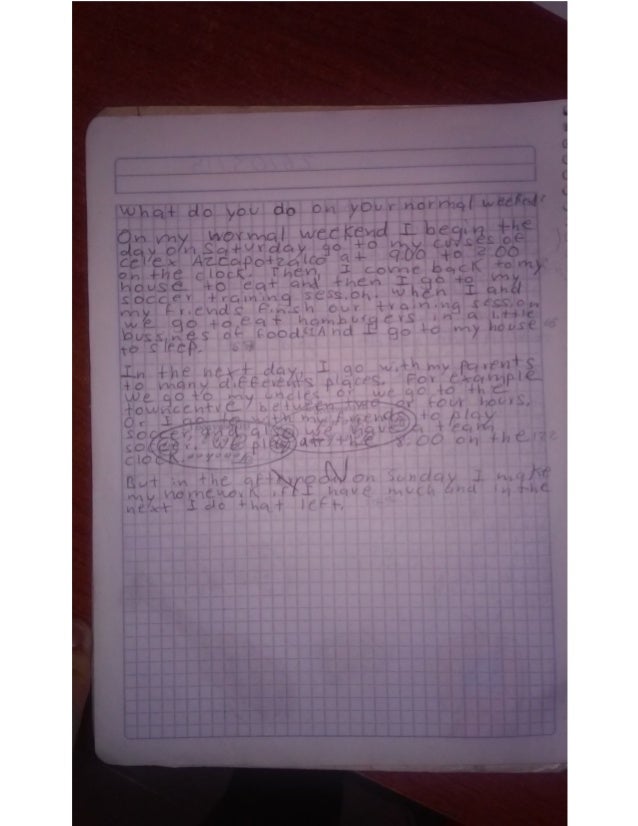 What do you do on your normal weekend?
On my normal weekend I begin the
day on Saturday go to my curses of
celex Azcapotzalco at 9:00 to 2:00
on the clock. Then, I come back to my
house to eat and then I go to my
soccer training session. When I and
my friends finish our training session
we go to eat hamburgers in a little
bussines of food. And I go to my house
to sleep.
In the next day, I go with my parents
to many differents places. For example
we go to my uncles or we go to the
towncentre, between two or four hours.
Or I go with my friends to play
soccer we have a team
soccer. We play at the 8:00 on the
clock.
But in the afternooN on Sunday I make
my homework if I have much and in the
next I do that left.